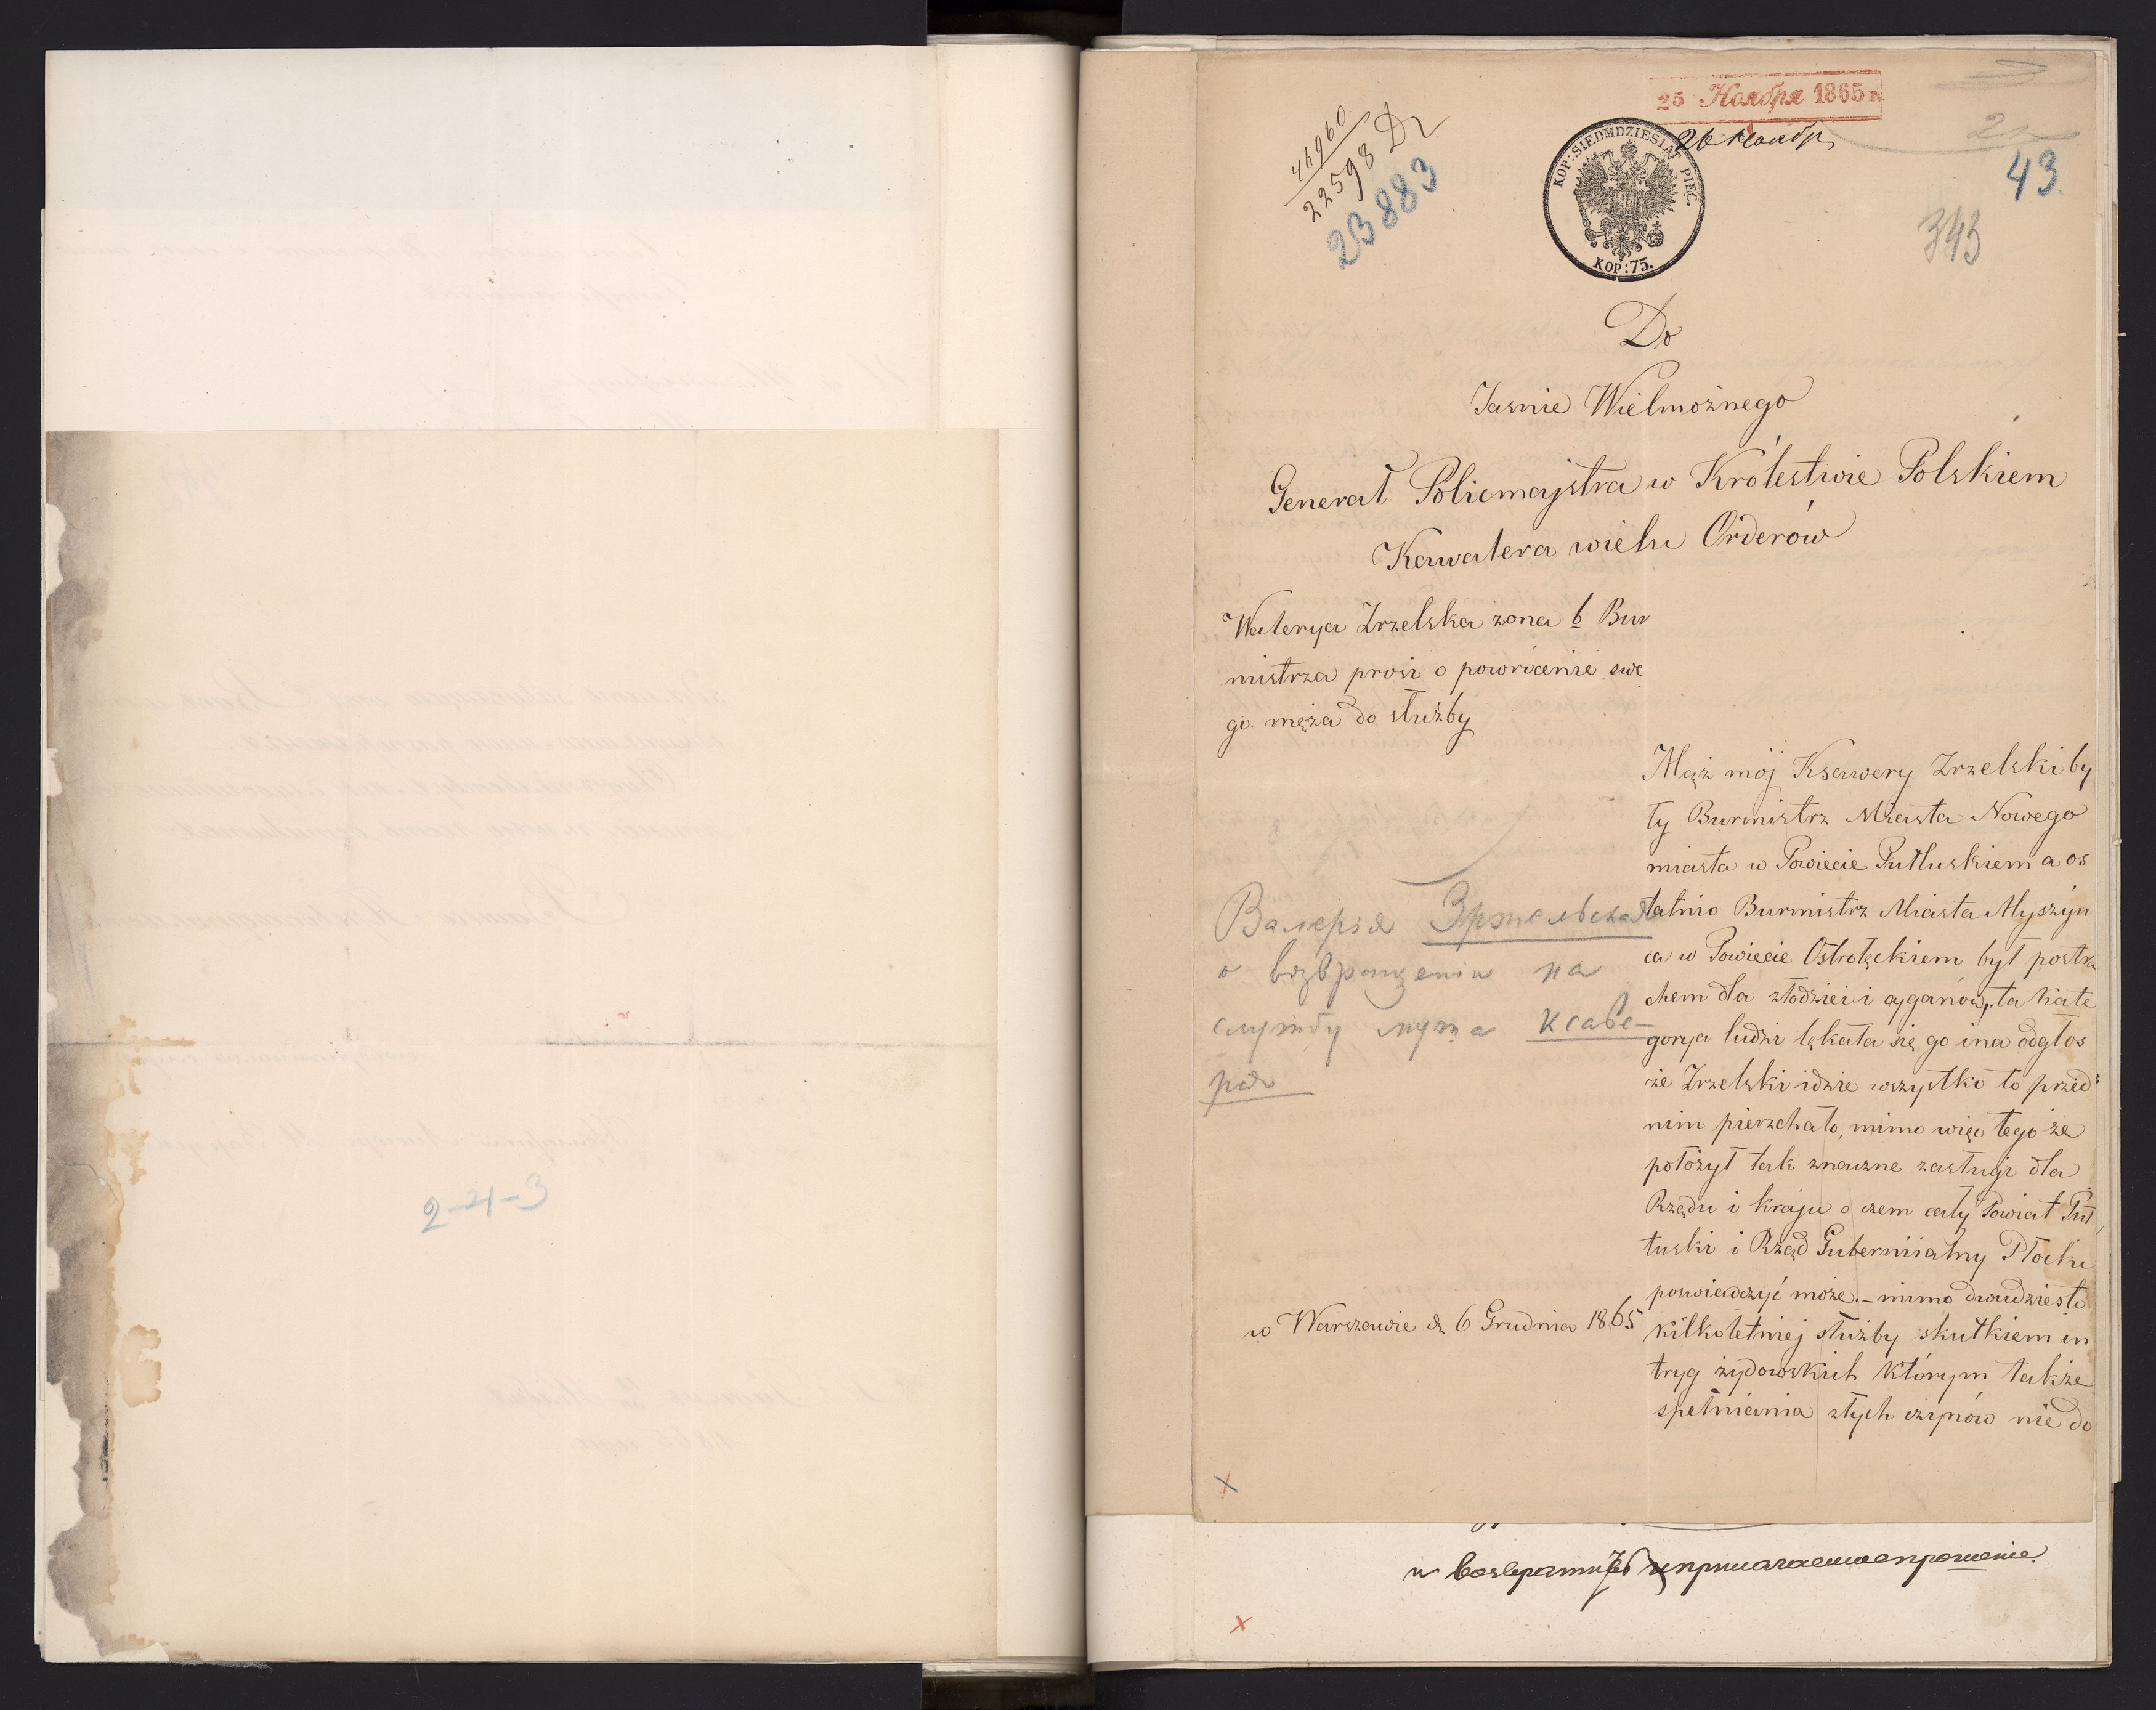 2-21-3
25 Ноября 1865 г.
26 Ноябр
46960
22598 D2
23883
KOP: SIEDMDZIESIĄT PIĘĆ.
KOP: 75.
43.
343
Do
Jasnie Wielmożnego
Generał Policmajstra w Królestwie Polskiem
Kawalera wielu Orderów
Walerya Zrzelska żona b Bur
mistrza prosi o powrócenie swe
go męża do służby
Валерія Зржельская
о возвращеніи на
службу мужа Ксаве-
рія
w Warszawie d. 6 Grudnia 1865
Mąż mój Ksawery Zrzelski by
ły Burmistrz Miasta Nowego
miasta w Powiecie Pułtuskiem a os
tatnio Burmistrz Miasta Myszyń
ca w Powiecie Ostrołęckiem był postra
chem dla złodziei i cyganów, ta kate
gorya ludzi lękała się go i na odgłos
że Zrzelski idzie wszystko to przed
nim pierzchało, mimo więc tego że
położył tak znaczne zasługi dla
Rządu i kraju o czem cały Powiat Puł
tuski i Rząd Gubernijalny Płocki
poswiadczyć może. – mimo dwudziesto
kilkoletniej służby skutkiem in
tryg żydowskich którym także
spełniania złych czynów nie do
и возвратить прилагаемое прошение.